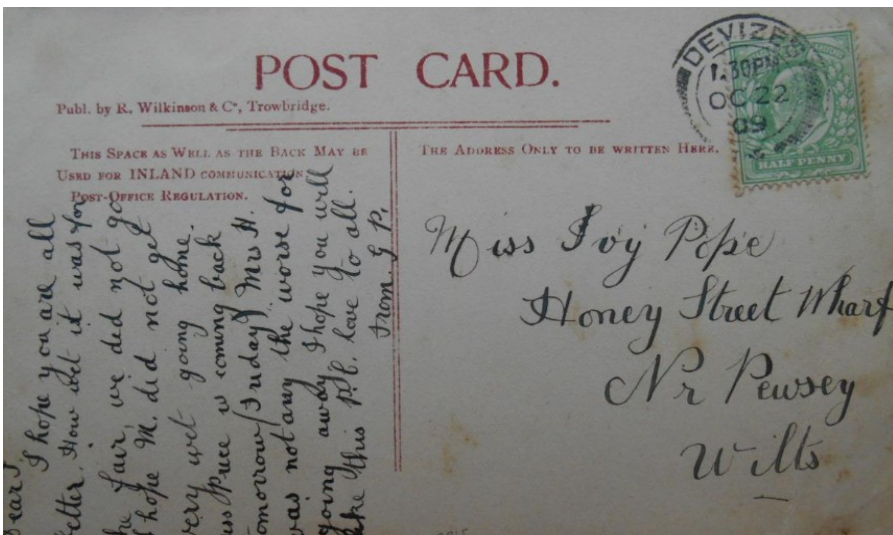 POST CARD.
Publ. by R. Wilkinson & Co, Trowbridge.
THIS SPACE AS WELL AS THE BACK MAY BE
USED FOR INLAND COMMUNICATION
POST-OFFICE REGULATION.
THE ADDRESS ONLY TO BE WRITTEN HERE.
DEVIZES
1.30PM
OC 22
09
HALF PENNY
Dear I
I hope you are all
better. How wet it was for
the fair, we did not go
I hope M. did not get
very wet going home.
iss Price is coming back
tomorrow (Friday) Mrs H.
was not any the worse for
going away I hope you will
like this P.C. love to all.
From G P.
Miss Ivy Pope
Honey Street Wharf
Nr Pewsey
Wilts